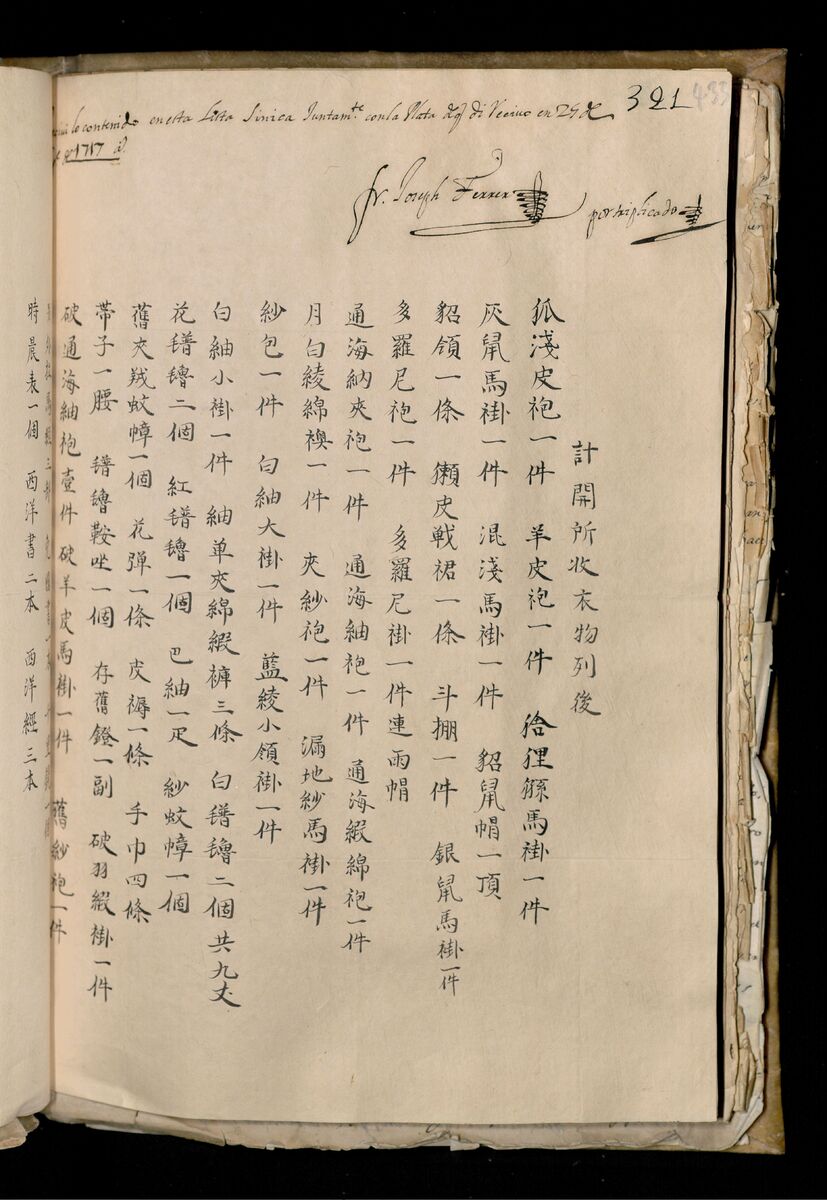 321 433
lo contenido en esta Lista Sinica Juntam.te con la Plata
1717
fr. Joseph Ferrer
por triplicado
計開所收衣物列後
狐淺皮袍一件 羊皮袍一件 猞狸猻馬褂一件
灰鼠馬褂一件 混淺馬褂一件 貂鼠帽一頂
貂領一條 獺皮戦裙一條 斗掤一件 銀鼠馬褂一件
多羅尼袍一件 多羅尼褂一件連雨帽
通海納夾袍一件 通海紬袍一件 通海緞綿袍一件
月白綾綿襖一件 夾紗袍一件 漏地紗馬褂一件
紗包一件 白紬大褂一件 藍綾小領褂一件
白紬小褂一件 紬单夾綿緞褲三條 白氆氇二個共九丈
花氆氇二個 紅氆氇一個 巴紬一疋 紗蚊幛一個
舊夾羢蚊幛一個 花弹一條 皮褥一條 手巾四條
帶子一腰 氆氇鞍坐一個 存舊鐙一副 破羽緞褂一件
破通海紬袍壹件 破羊皮馬褂一件 舊紗袍一件
時晨表一個 西洋書二本 西洋經三本